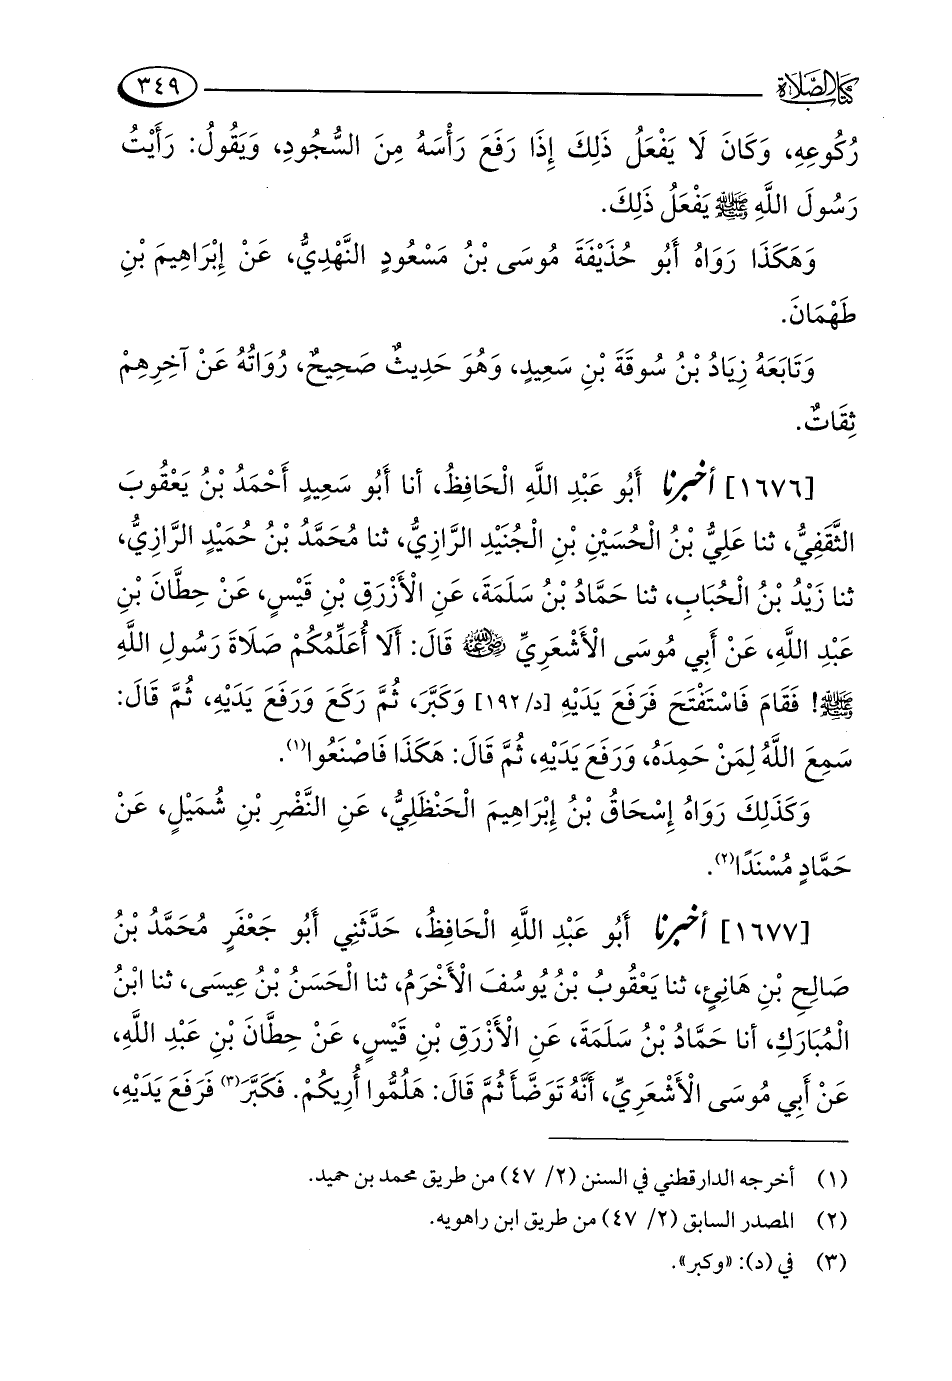 كتاب الصلاة ٣٤٩
رُكُوعِهِ، وَكَانَ لَا يَفْعَلُ ذَلِكَ إِذَا رَفَعَ رَأْسَهُ مِنَ السُّجُودِ، وَيَقُولُ: رَأَيْتُ
رَسُولَ اللَّهِ ﷺ يَفْعَلُ ذَلِكَ.
وَهَكَذَا رَوَاهُ أَبُو حُذَيْفَةَ مُوسَى بْنُ مَسْعُودٍ النَّهْدِيُّ، عَنْ إِبْرَاهِيمَ بْنِ
طَهْمَانَ.
وَتَابَعَهُ زِيَادُ بْنُ سُوقَةَ بْنِ سَعِيدٍ، وَهُوَ حَدِيثٌ صَحِيحٌ، رُوَاتُهُ عَنْ آخِرِهِمْ
ثِقَاتٌ.
[١٦٧٦] أخبرنا أَبُو عَبْدِ اللَّهِ الْحَافِظُ، أنا أَبُو سَعِيدٍ أَحْمَدُ بْنُ يَعْقُوبَ
الثَّقَفِيُّ، ثنا عَلِيُّ بْنُ الْحُسَيْنِ بْنِ الْجُنَيْدِ الرَّازِيُّ، ثنا مُحَمَّدُ بْنُ حُمَيْدٍ الرَّازِيُّ،
ثنا زَيْدُ بْنُ الْحُبَابِ، ثنا حَمَّادُ بْنُ سَلَمَةَ، عَنِ الْأَزْرَقِ بْنِ قَيْسٍ، عَنْ حِطَّانَ بْنِ
عَبْدِ اللَّهِ، عَنْ أَبِي مُوسَى الْأَشْعَرِيِّ رضي الله عنه قَالَ: أَلَا أُعَلِّمُكُمْ صَلَاةَ رَسُولِ اللَّهِ
ﷺ! فَقَامَ فَاسْتَفْتَحَ فَرَفَعَ يَدَيْهِ [د/١٩٢] وَكَبَّرَ، ثُمَّ رَكَعَ وَرَفَعَ يَدَيْهِ، ثُمَّ قَالَ:
سَمِعَ اللَّهُ لِمَنْ حَمِدَهُ، وَرَفَعَ يَدَيْهِ، ثُمَّ قَالَ: هَكَذَا فَاصْنَعُوا(١).
وَكَذَلِكَ رَوَاهُ إِسْحَاقُ بْنُ إِبْرَاهِيمَ الْحَنْظَلِيُّ، عَنِ النَّضْرِ بْنِ شُمَيْلٍ، عَنْ
حَمَّادٍ مُسْنَدًا(٢).
[١٦٧٧] أخبرنا أَبُو عَبْدِ اللَّهِ الْحَافِظُ، حَدَّثَنِي أَبُو جَعْفَرٍ مُحَمَّدُ بْنُ
صَالِحِ بْنِ هَانِئٍ، ثنا يَعْقُوبُ بْنُ يُوسُفَ الْأَخْرَمُ، ثنا الْحَسَنُ بْنُ عِيسَى، ثنا ابْنُ
الْمُبَارَكِ، أنا حَمَّادُ بْنُ سَلَمَةَ، عَنِ الْأَزْرَقِ بْنِ قَيْسٍ، عَنْ حِطَّانَ بْنِ عَبْدِ اللَّهِ،
عَنْ أَبِي مُوسَى الْأَشْعَرِيِّ، أَنَّهُ تَوَضَّأَ ثُمَّ قَالَ: هَلُمُّوا أُرِيكُمْ. فَكَبَّرَ(٣) فَرَفَعَ يَدَيْهِ،
(١) أخرجه الدارقطني في السنن (٢/ ٤٧) من طريق محمد بن حميد.
(٢) المصدر السابق (٢/ ٤٧) من طريق ابن راهويه.
(٣) في (د): «وكبر».